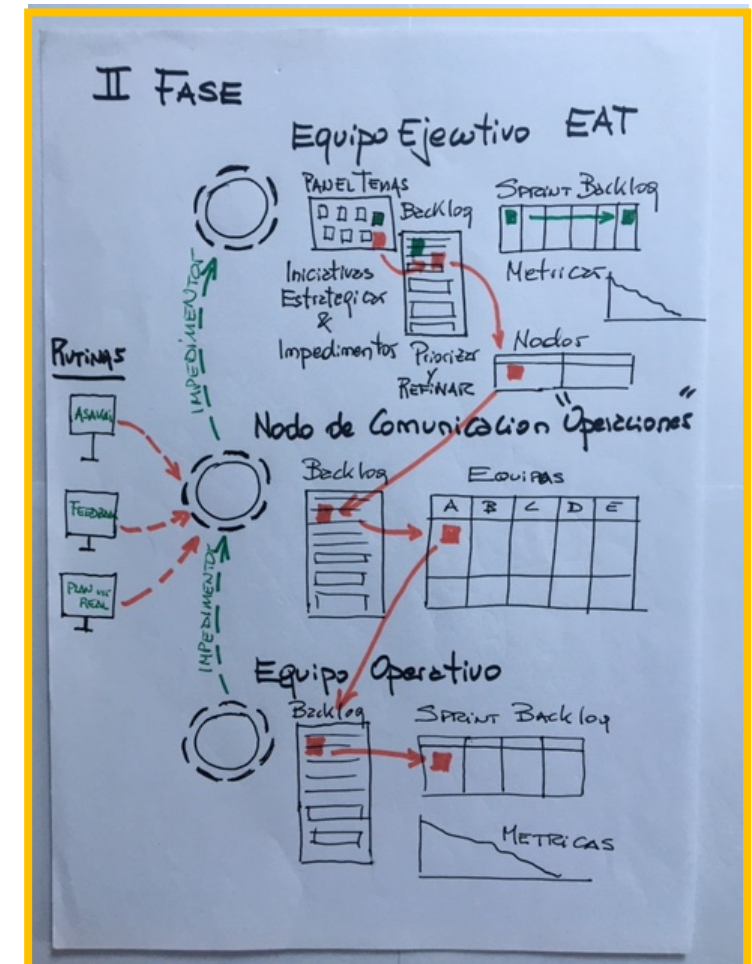 II FASE
Equipo Ejecutivo EAT
PANEL TEMAS
Backlog
SPRINT BACKLOG
Iniciativas
Estrategicas
&
Impedimentos
Priorizar
y
REFINAR
Metricas
Nodos
IMPEDIMENTOS
RUTINAS
FEEDBACK
PLAN
REAL
Nodo de Comunicacion "Operaciones"
Backlog
EQUIPAS
A B C D E
IMPEDIMENTOS
Equipo Operativo
Backlog
SPRINT BACKLOG
METRICAS